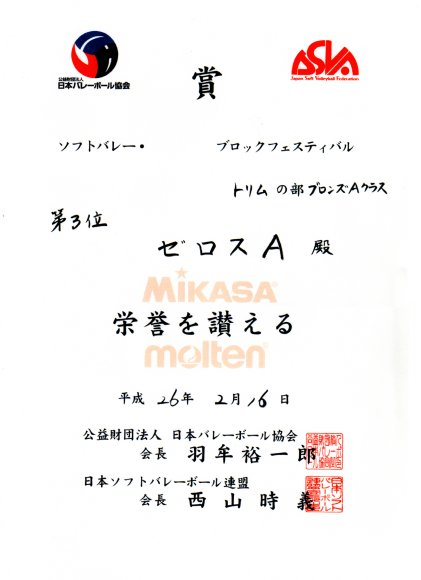 公益財団法人
日本バレーボール協会
JSVA
Japan Soft Volleyball Federation
賞
ソフトバレー・ ブロックフェスティバル
トリム の部 ブロンズAクラス
第3位
ゼロスA 殿
MIKASA
栄誉を讃える
molten
平成 26年 2月 16日
公益財団法人 日本バレーボール協会
会長 羽牟裕一郎
日本ソフトバレーボール連盟
会長 西山時義